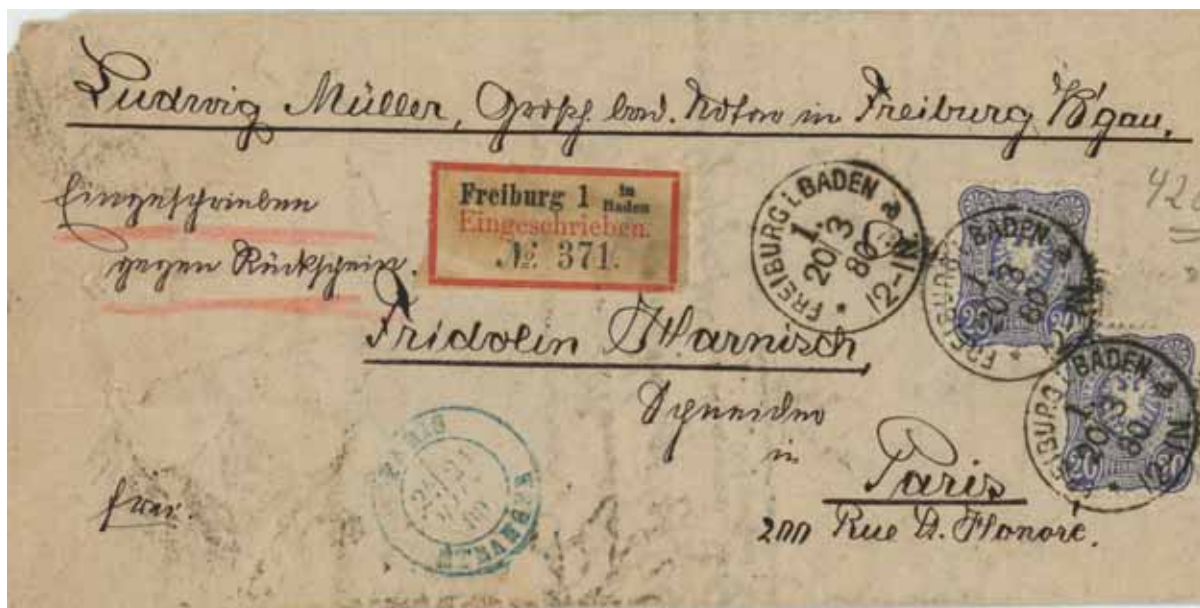 Ludwig Müller, Großh. bad. Notar in Freiburg B'gau.
Eingeschrieben
gegen Rückschein.
Freiburg 1 in Baden
Eingeschrieben.
No. 371.
FREIBURG i. BADEN * a
1.
20/3
80
12-1N
FREIBURG i. BADEN * a
1.
20/3
80
12-1N
25 25
FREIBURG i. BADEN * a
1.
20/3
80
12-1N
20 20
42
Fridolin Harnisch,
Schneider
in
Paris
200 Rue St. Honoré.
PARIS
ETRANGER
frei.